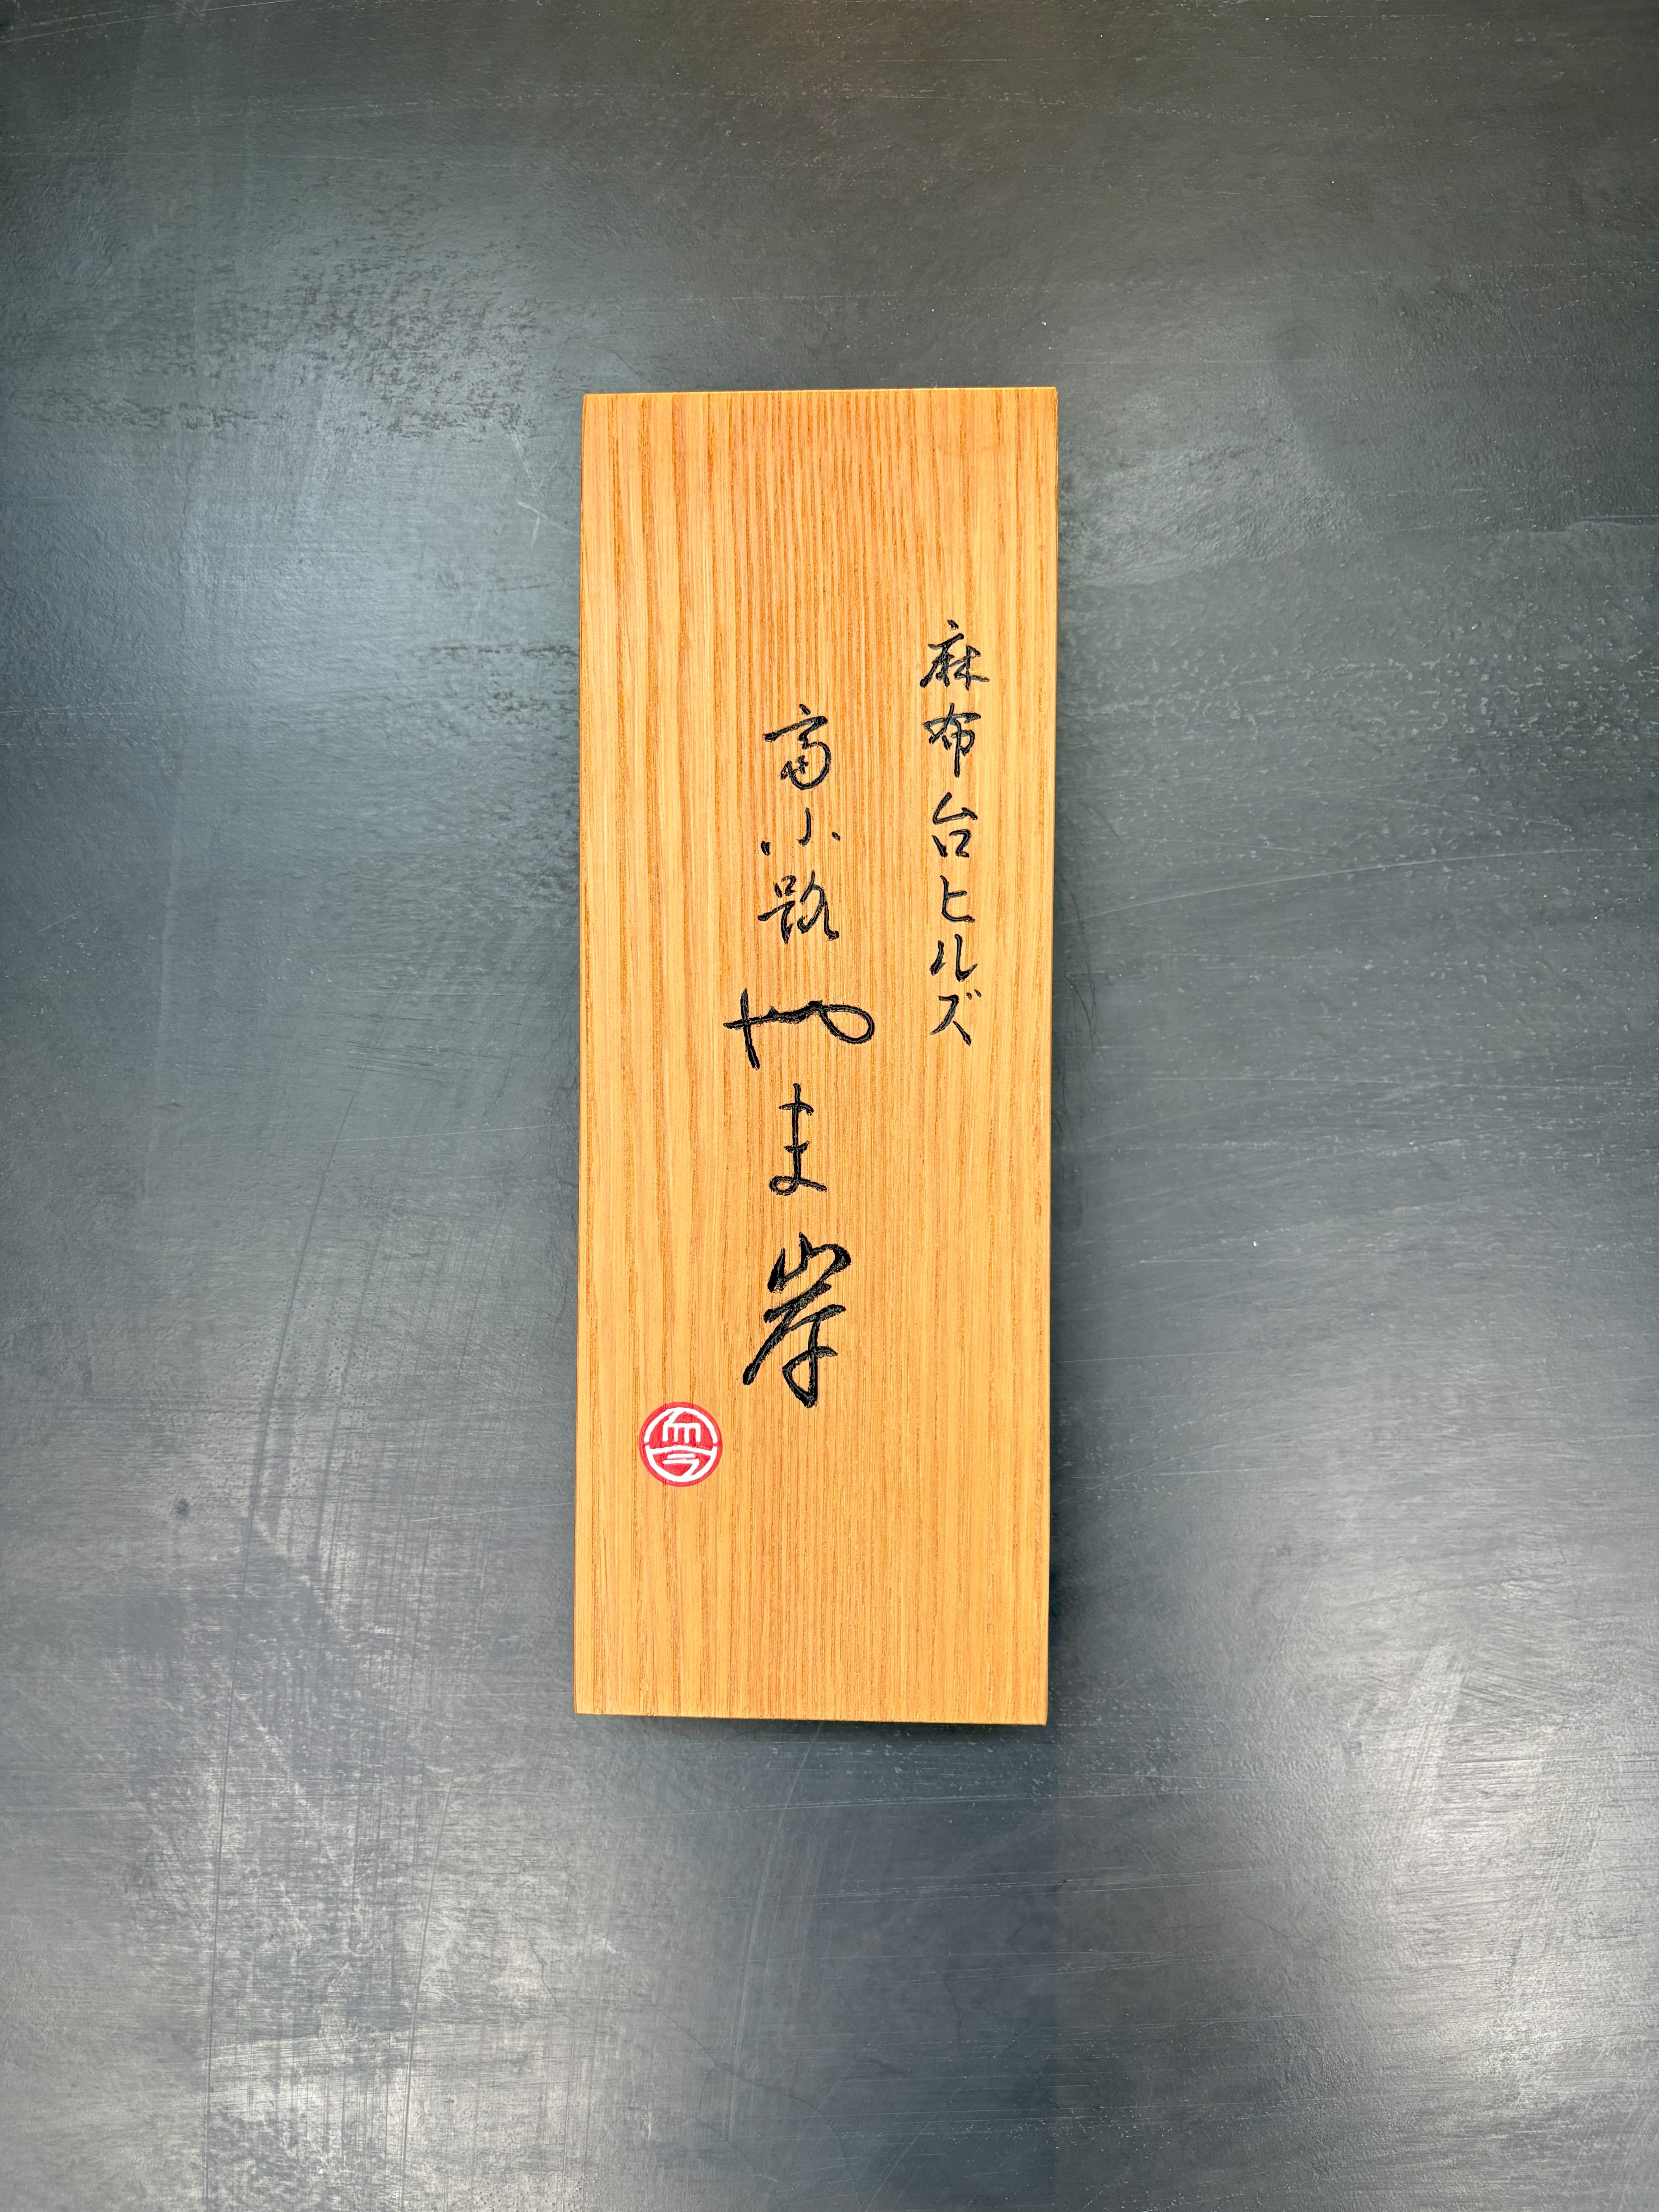 麻布台ヒルズ
富小路やま岸